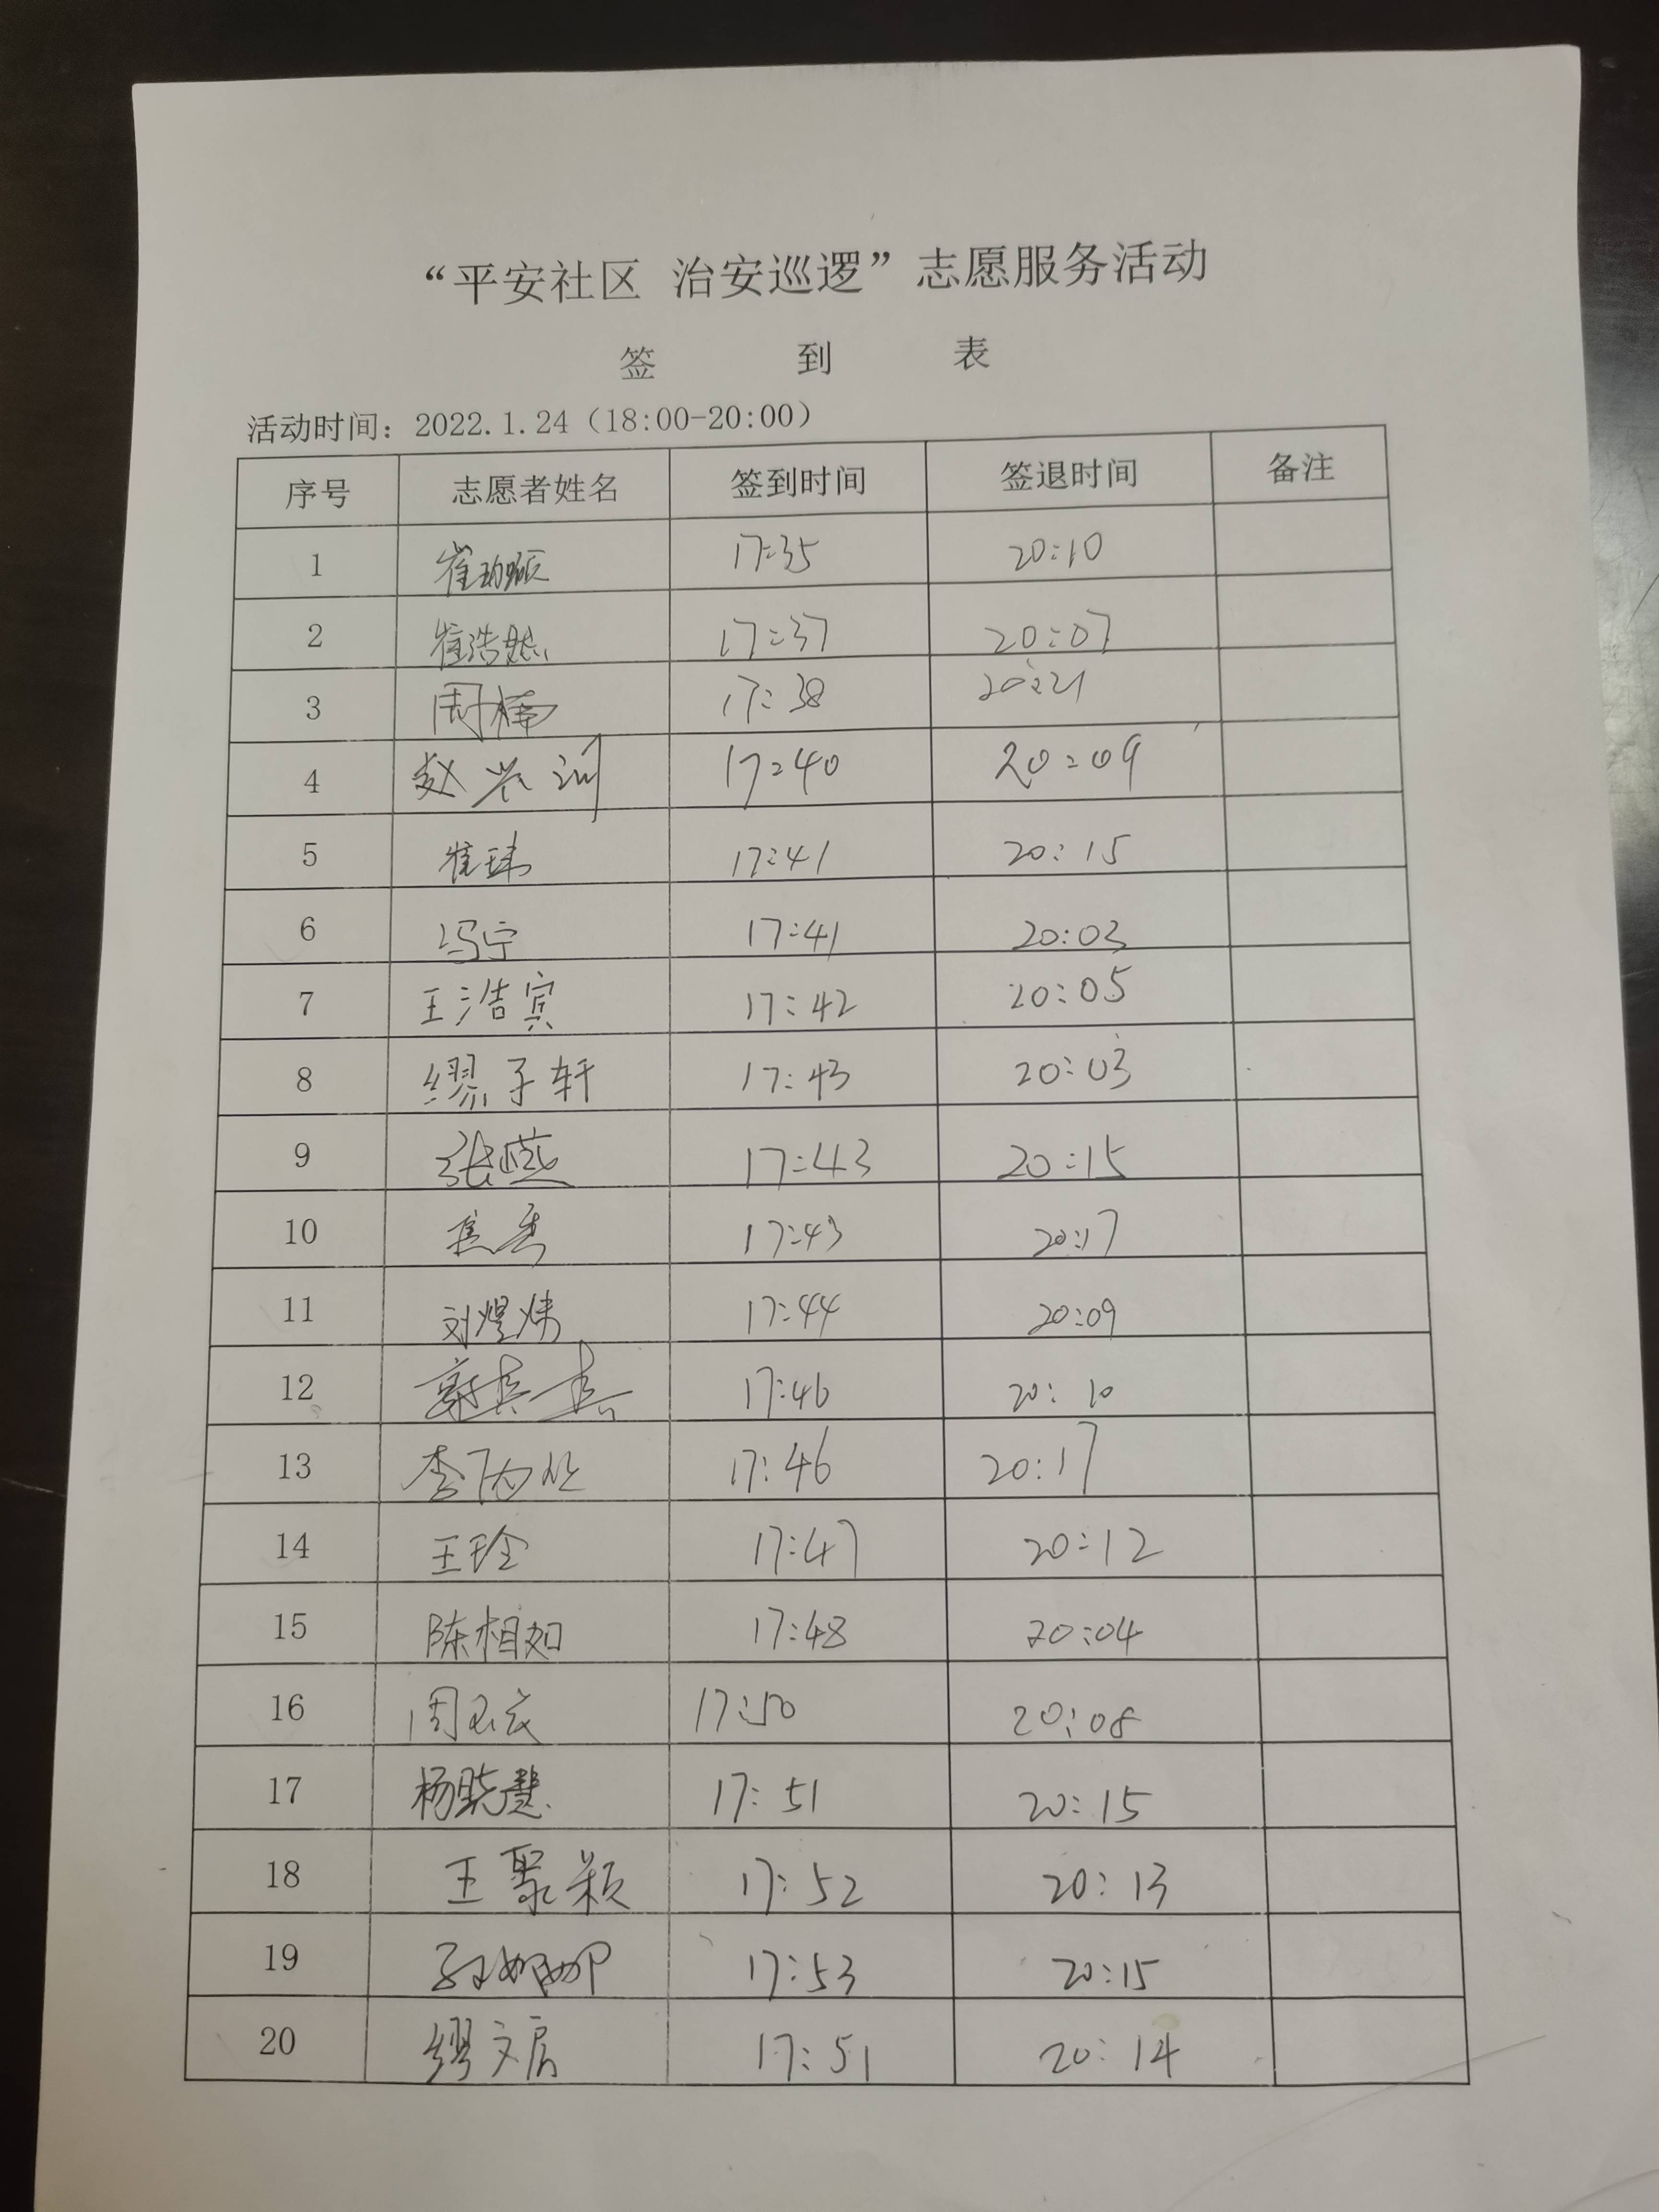 “平安社区 治安巡逻”志愿服务活动
签 到 表
活动时间：2022.1.24（18:00-20:00）
序号 志愿者姓名 签到时间 签退时间 备注
1 崔 17:35 20:10
2 崔浩然 17:37 20:07
3 周楠 17:38 20:21
4 赵兴润 17:40 20:09
5 崔玮 17:41 20:15
6 冯宁 17:41 20:03
7 王浩宾 17:42 20:05
8 缪子轩 17:43 20:03
9 张燕 17:43 20:15
10 17:43 20:17
11 刘煜炜 17:44 20:09
12 17:46 20:10
13 李 17:46 20:17
14 王玲 17:47 20:12
15 陈相如 17:48 20:04
16 周 17:50 20:08
17 杨晓慧 17:51 20:15
18 王聚颖 17:52 20:13
19 孙娜娜 17:53 20:15
20 缪文 17:51 20:14